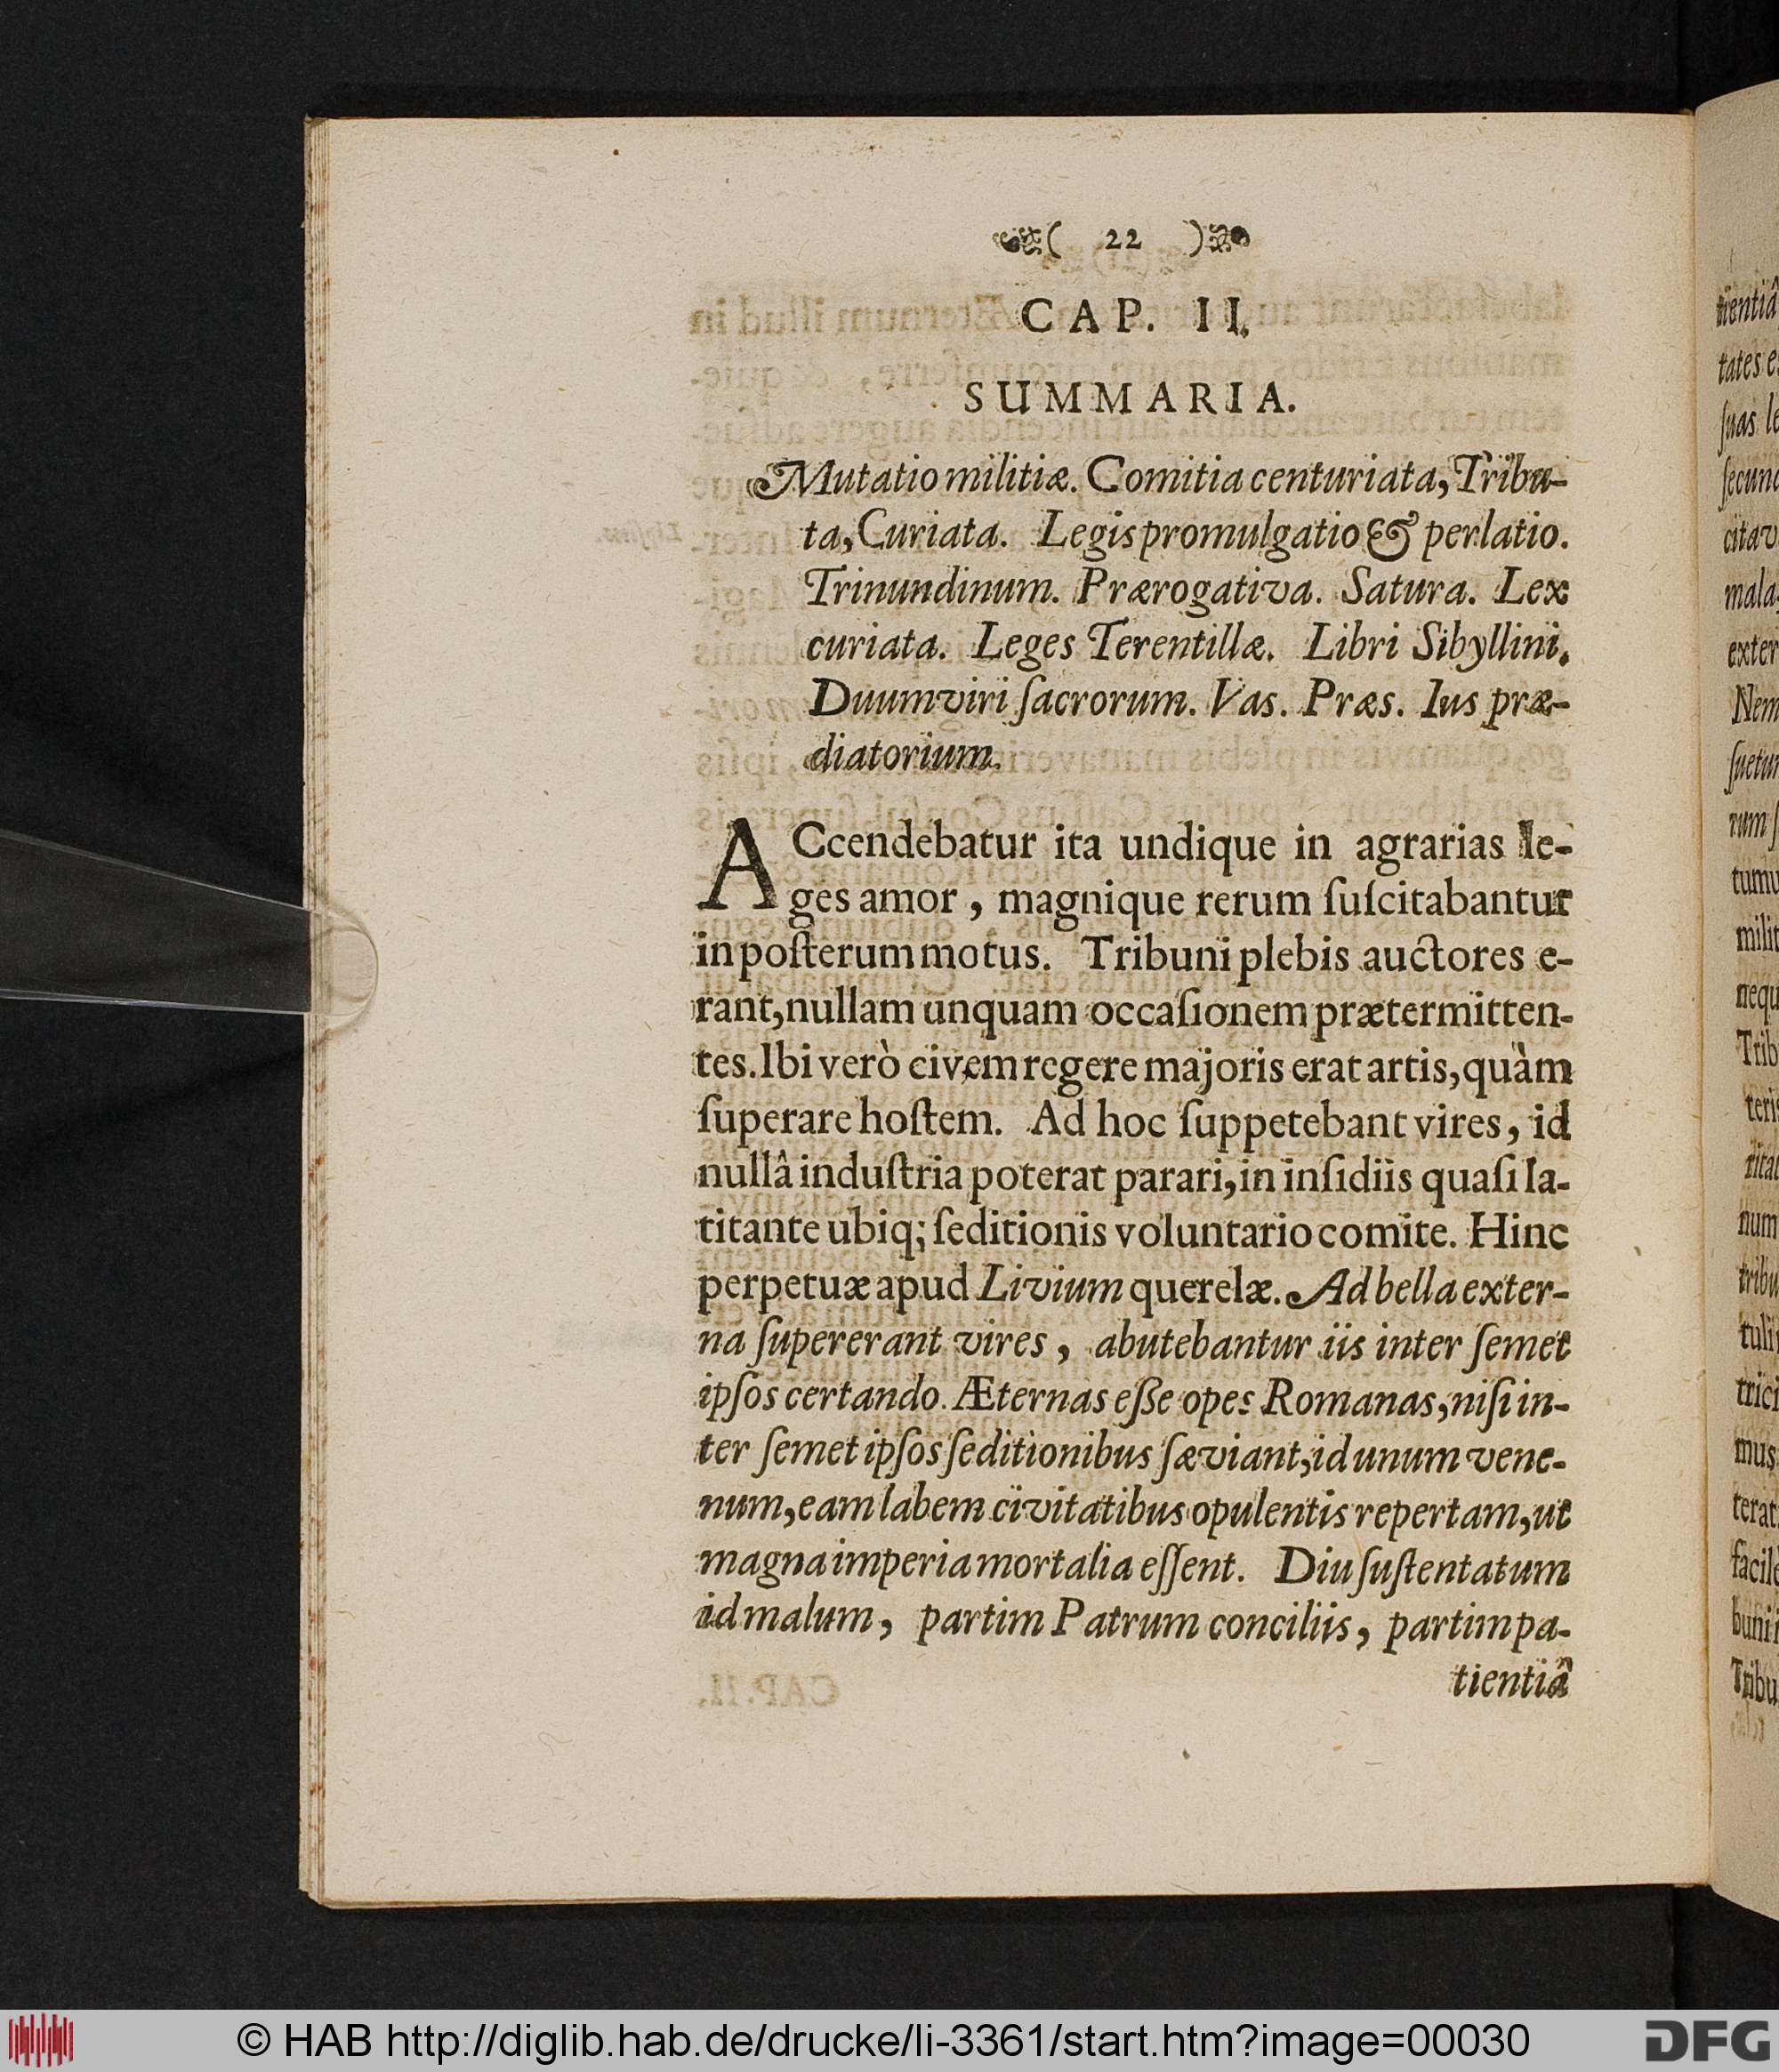 ( 22 )
CAP. II.
SUMMARIA.
Mutatio militiæ. Comitia centuriata, Tribu-
ta, Curiata. Legis promulgatio & perlatio.
Trinundinum. Prærogativa. Satura. Lex
curiata. Leges Terentillæ. Libri Sibyllini.
Duumviri ſacrorum. Vas. Præs. Ius præ-
diatorium.
ACcendebatur ita undique in agrarias le-
ges amor, magnique rerum ſuſcitabantur
in poſterum motus. Tribuni plebis auctores e-
rant, nullam unquam occaſionem prætermitten-
tes. Ibi verò civem regere majoris erat artis, quàm
ſuperare hoſtem. Ad hoc ſuppetebant vires, id
nullâ induſtria poterat parari, in inſidiis quaſi la-
titante ubiq; ſeditionis voluntario comite. Hinc
perpetuæ apud Livium querelæ. Ad bella exter-
na ſupererant vires, abutebantur iis inter ſemet
ipſos certando. Æternas eſſe opes Romanas, niſi in-
ter ſemet ipſos ſeditionibus ſæviant, id unum vene-
num, eam labem civitatibus opulentis repertam, ut
magna imperia mortalia eſſent. Diu ſuſtentatum
id malum, partim Patrum conciliis, partim pa-
tientiâ
tientiâ
tates
ſuas
mala
Nem
num
mus
© HAB http://diglib.hab.de/drucke/li-3361/start.htm?image=00030
DFG